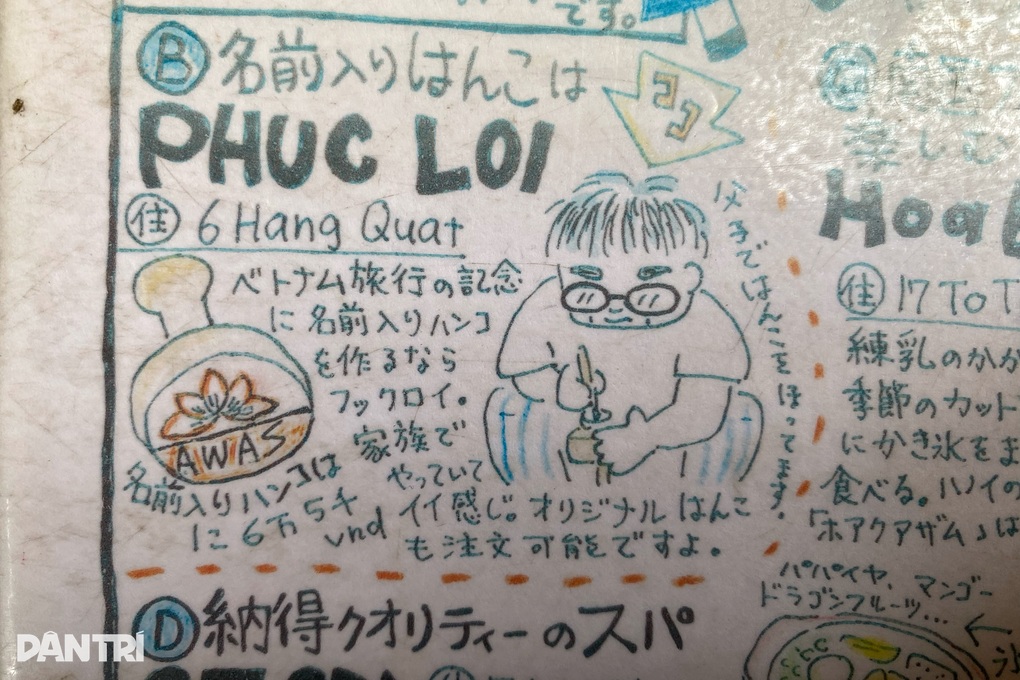 です。
B 名前入りはんこは
PHUC LOI
ココ
住 6 Hang Quat
ベトナム旅行の記念
に名前入りハンコ
を作るなら
フックロイ。
家族で
やっていて
イイ感じ。オリジナルはんこ
も注文可能ですよ。
AWAS
名前入りハンコは
に6万5千
vnd
父子ではんこをほってます。
D 納得クオリティーのスパ
住 17 To T
練乳のかか
季節のカット
にかき氷をま
食べる。ハノイの
「ホアクアザム」は
パパイヤ、マンゴー
ドラゴンフルーツ...
氷
DÂNTRÍ